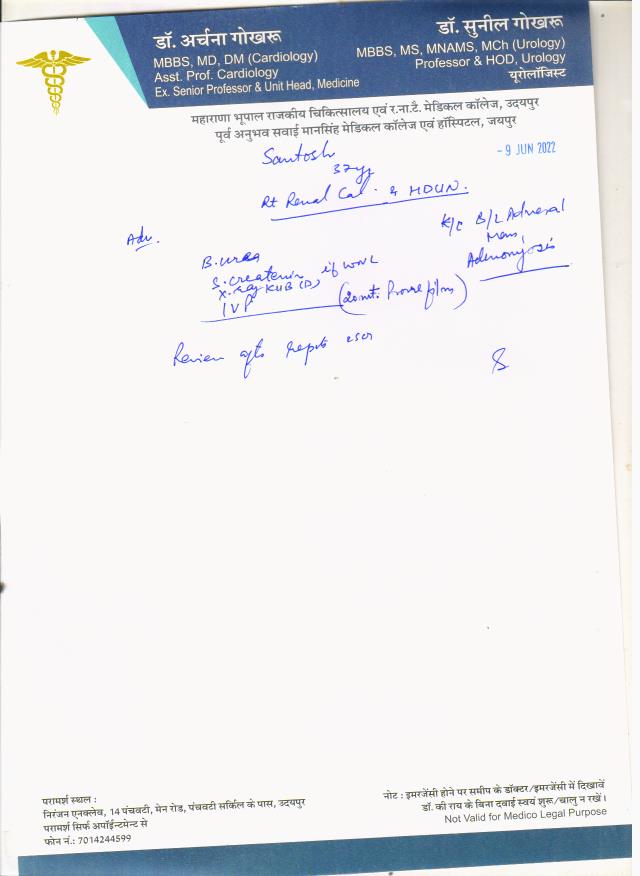 डॉ. अर्चना गोखरू
MBBS, MD, DM (Cardiology)
Asst. Prof. Cardiology
Ex. Senior Professor & Unit Head, Medicine
डॉ. सुनील गोखरू
MBBS, MS, MNAMS, MCh (Urology)
Professor & HOD, Urology
यूरोलॉजिस्ट
महाराणा भूपाल राजकीय चिकित्सालय एवं र.ना.टै. मेडिकल कॉलेज, उदयपुर
पूर्व अनुभव सवाई मानसिंह मेडिकल कॉलेज एवं हॉस्पिटल, जयपुर
- 9 JUN 2022
Santosh
32yr
Rt Renal Cal. & HDUN.
K/C B/L Adrenal
Mass,
Adenomyosis
Adv.
B.urea
S.creatinin if WNL
X-ray KUB (P)
IVP (20 mt. Prone film)
Review after reports
परामर्श स्थल :
निरंजन एनक्लेव, 14 पंचवटी, मेन रोड, पंचवटी सर्किल के पास, उदयपुर
परामर्श सिर्फ अपॉईन्टमेन्ट से
फोन नं.: 7014244599
नोट : इमरजेंसी होने पर समीप के डॉक्टर/इमरजेंसी में दिखावें
डॉ. की राय के बिना दवाई स्वयं शुरू/चालु न रखें।
Not Valid for Medico Legal Purpose